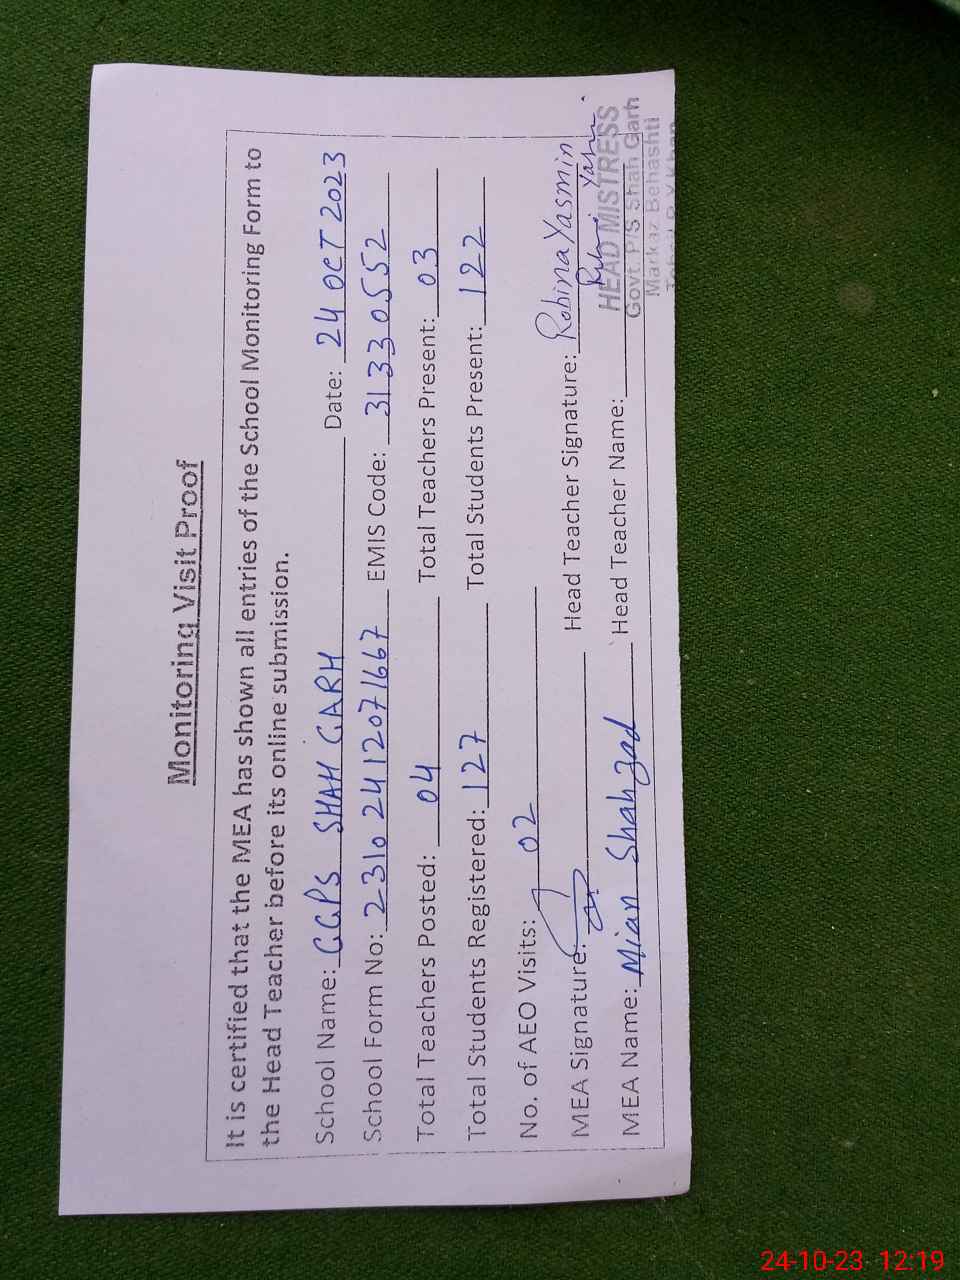 Monitoring Visit Proof
It is certified that the MEA has shown all entries of the School Monitoring Form to
the Head Teacher before its online submission.
School Name: GGPS SHAH GARH Date: 24 OCT 2023
School Form No: 23102412071667 EMIS Code: 31330552
Total Teachers Posted: 04 Total Teachers Present: 03
Total Students Registered: 127 Total Students Present: 122
No. of AEO Visits: 02
MEA Signature: Head Teacher Signature: Robina Yasmin
MEA Name: Mian Shahzad Head Teacher Name:
HEAD MISTRESS
Govt. P/S Shah Garh
Markaz Behashti
24-10-23 12:19